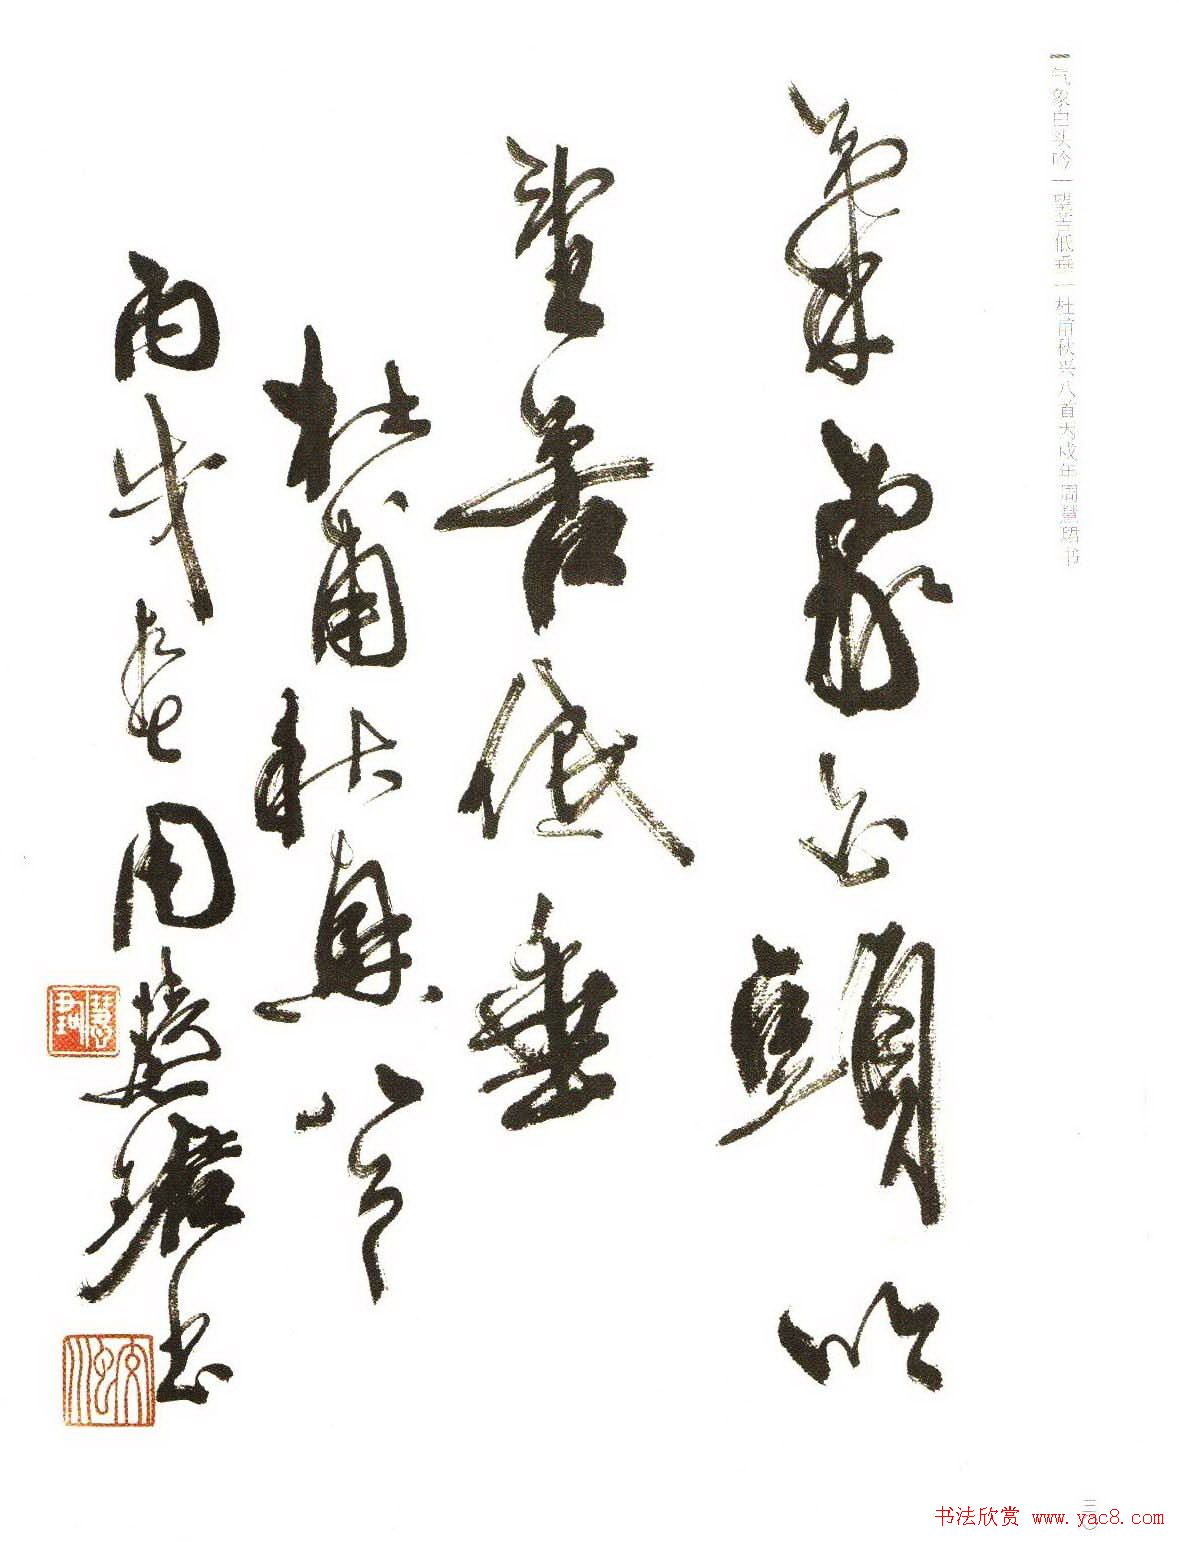 气象白头吟|望苦低垂|杜甫秋兴八首丙戌年周慧珺书
氣象白頭吟
望苦低垂
杜甫秋興八首
丙戌春周慧珺書
慧珺
三〇
书法欣赏 www.yac8.com